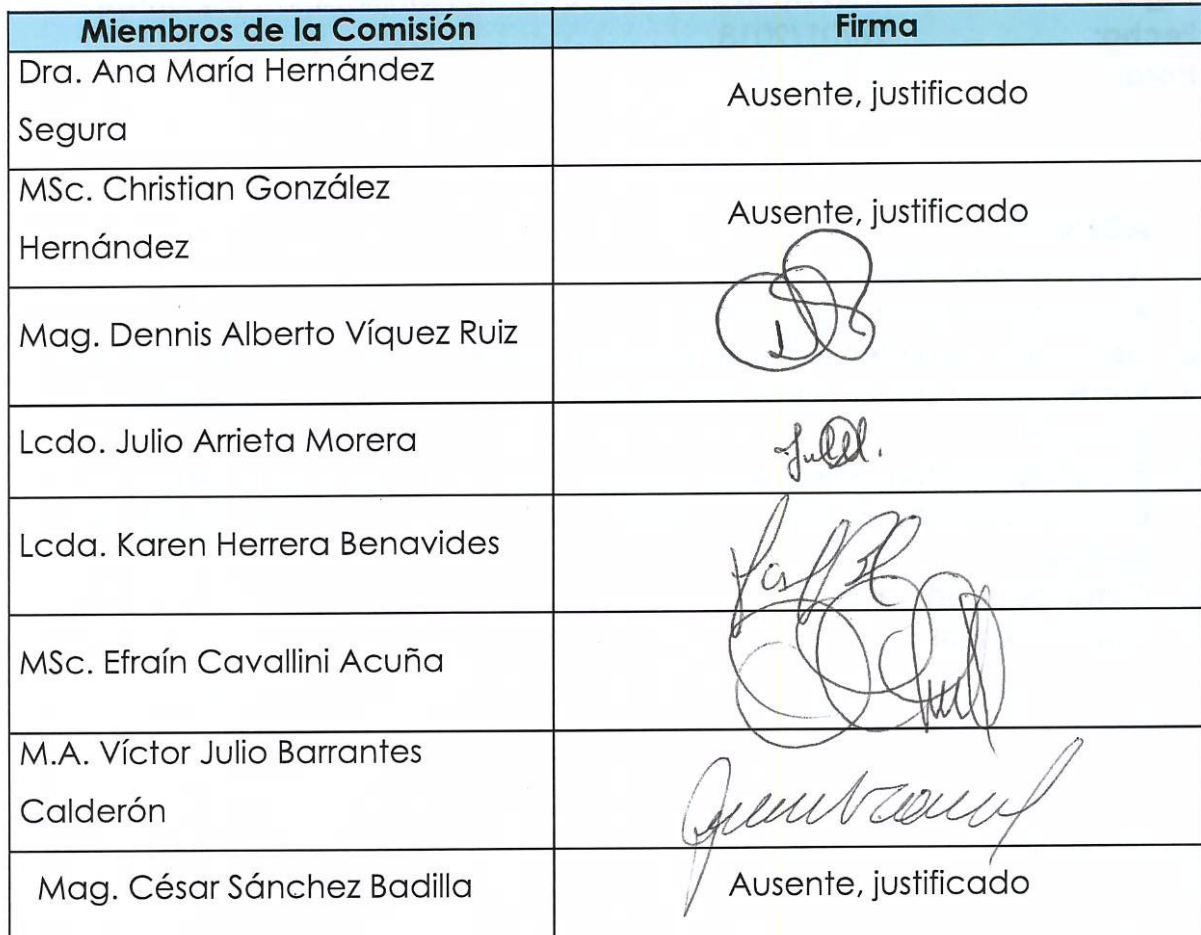 Miembros de la Comisión Firma
Dra. Ana María Hernández
Segura
Ausente, justificado
MSc. Christian González
Hernández
Ausente, justificado
Mag. Dennis Alberto Víquez Ruiz
Lcdo. Julio Arrieta Morera
Lcda. Karen Herrera Benavides
MSc. Efraín Cavallini Acuña
M.A. Víctor Julio Barrantes
Calderón
Mag. César Sánchez Badilla Ausente, justificado